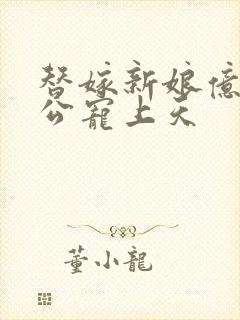 替嫁新娘億
公寵上天
董小龍